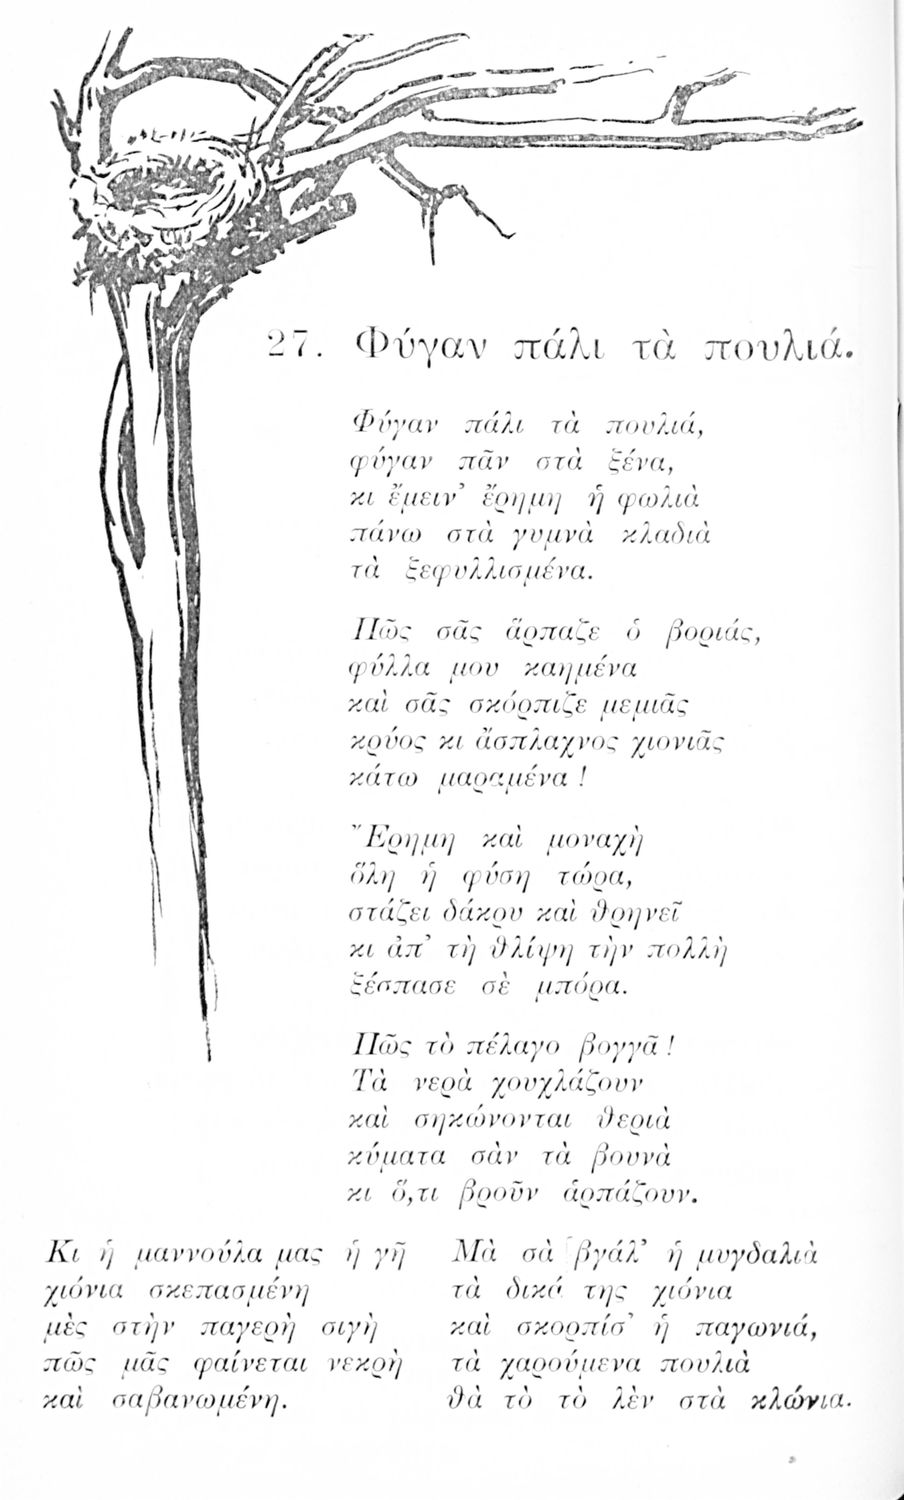 27. Φύγαν πάλι τὰ πουλιά.
Φύγαν πάλι τὰ πουλιά,
φύγαν πᾶν στὰ ξένα,
κι ἔμειν᾿ ἔρημη ἡ φωλιὰ
πάνω στὰ γυμνὰ κλαδιὰ
τὰ ξεφυλλισμένα.
Πῶς σᾶς ἅρπαζε ὁ βοριάς,
φύλλα μου καημένα
καὶ σᾶς σκόρπιζε μεμιᾶς
κρύος κι ἄσπλαχνος χιονιᾶς
κάτω μαραμένα !
Ἔρημη καὶ μοναχὴ
ὅλη ἡ φύση τώρα,
στάζει δάκρυ καὶ θρηνεῖ
κι ἀπ᾿ τὴ θλίψη τὴν πολλὴ
ξέσπασε σὲ μπόρα.
Πῶς τὸ πέλαγο βογγᾶ !
Τὰ νερὰ χουχλάζουν
καὶ σηκώνονται θεριὰ
κύματα σὰν τὰ βουνὰ
κι ὅ,τι βροῦν ἁρπάζουν.
Κι ἡ μαννούλα μας ἡ γῆ
χιόνια σκεπασμένη
μὲς στὴν παγερὴ σιγὴ
πῶς μᾶς φαίνεται νεκρὴ
καὶ σαβανωμένη.
Μὰ σὰ βγάλ᾿ ἡ μυγδαλιὰ
τὰ δικά της χιόνια
καὶ σκορπίσ᾿ ἡ παγωνιά,
τὰ χαρούμενα πουλιὰ
θὰ τὸ τὸ λὲν στὰ κλώνια.